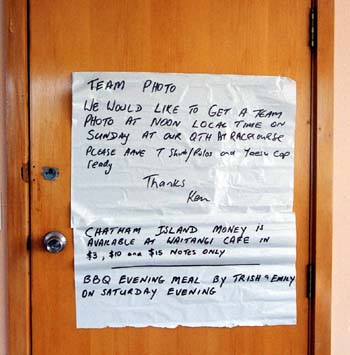 TEAM PHOTO
WE WOULD LIKE TO GET A TEAM
PHOTO AT NOON LOCAL TIME ON
SUNDAY AT OUR QTH AT RACECOURSE
PLEASE HAVE T Shirts/Polos and Yaesu Cap
ready
Thanks
Ken
CHATHAM ISLAND MONEY IS
AVAILABLE AT WAITANGI CAFE IN
$3, $10 and $15 NOTES ONLY
BBQ EVENING MEAL BY TRISH & EMILY
ON SATURDAY EVENING